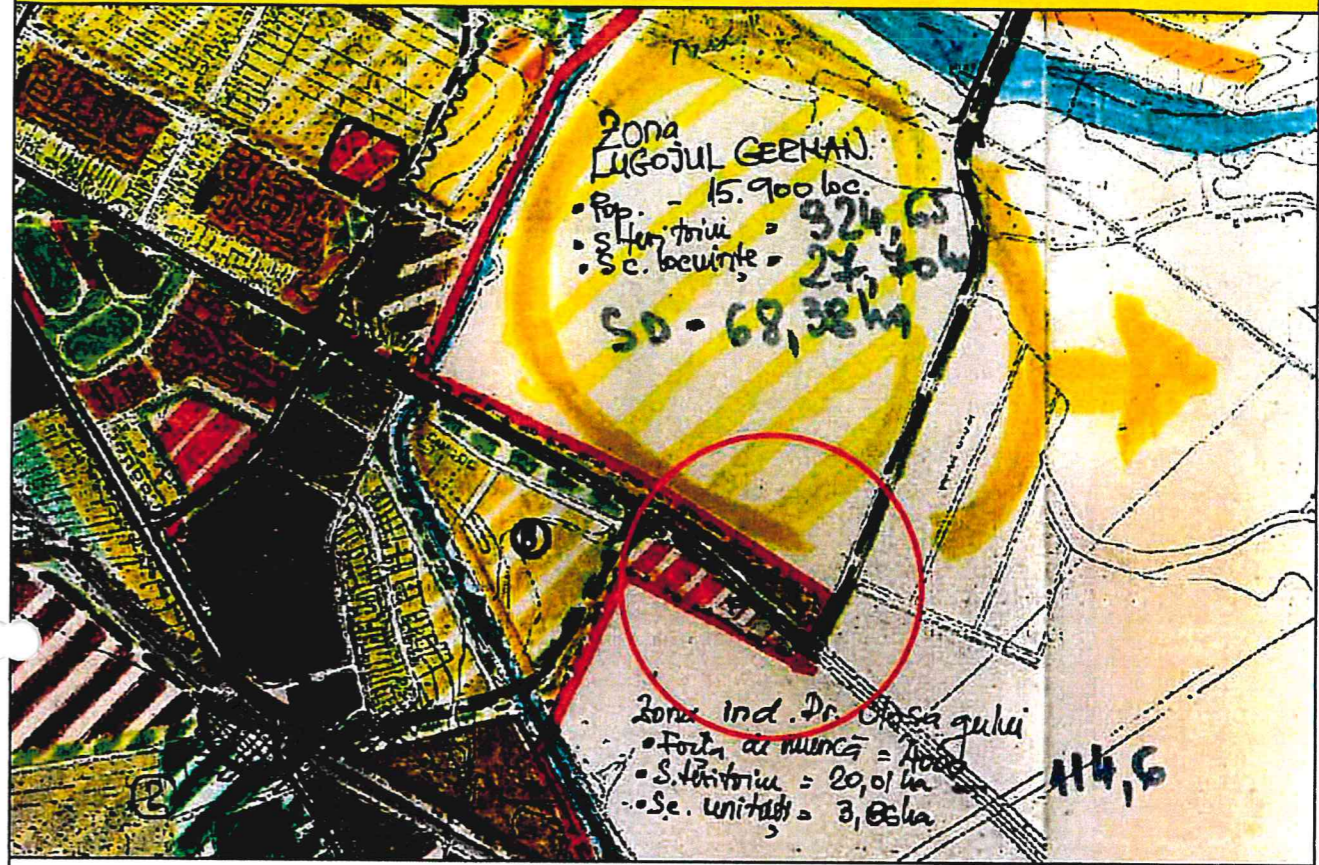 Zona
LUGOJUL GERMAN.
• Pop. - 15.900 loc.
• S. teritoriu = 324,65
• S c. locuințe = 27,70 ha
SD = 68,38 ha
Zona ind. Dr. Olosagului
• Forța de muncă =
• S. teritoriu = 20,01 ha
• Sc. unități = 3,86 ha
114,6